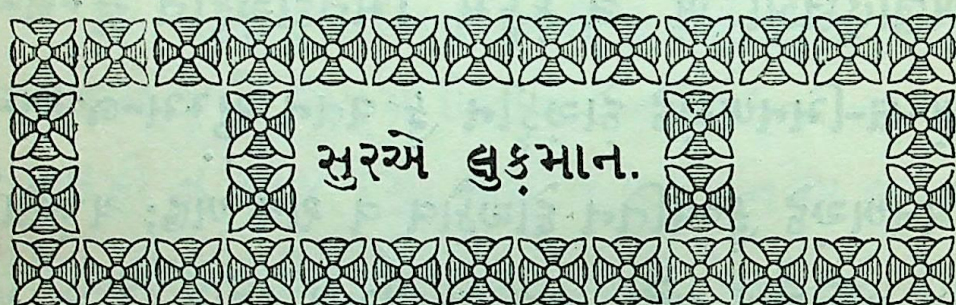 સુરએ લુક઼માન.